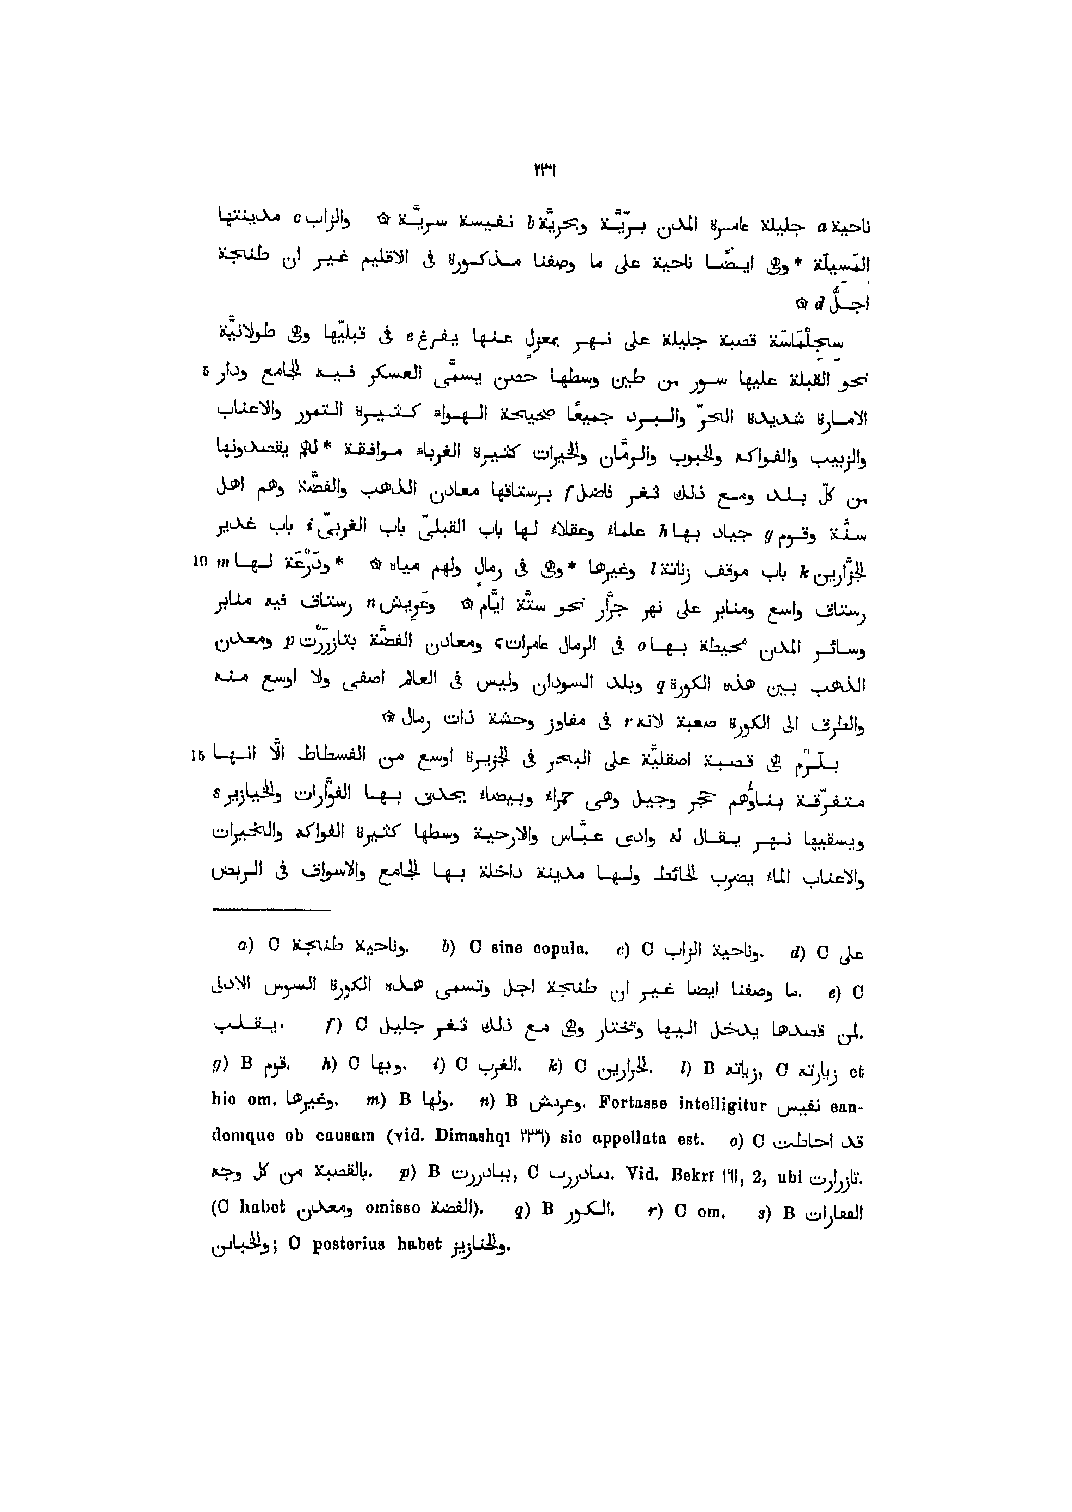 ٢٣١
ناحية a جليلة عامرة المدن برّيّة وبحريّة b نفيسة سريّة ۞ والزاب c مدينتها
المَسيلَة * وهى ايضًا ناحية على ما وصفنا مذكورة فى الاقليم غير ان طنجة
اجلّ d ۞
سِجِلْمَاسَة قصبة جليلة على نهر بمعزل عنها يفرغ e فى قبليّها وهى طولانيّة
نحو القبلة عليها سور من طين وسطها حصن يسمّى العسكر فيه الجامع ودار 5
الامارة شديدة الحرّ والبرد جميعًا صحيحة الهواء كثيرة التمور والاعناب
والزبيب والفواكه والحبوب والرمّان والخيرات كثيرة الغرباء موافقة * لهم يقصدونها
من كلّ بلد ومع ذلك ثغر فاضل f برستاقها معادن الذهب والفضّة وهم اهل
سنّة وقوم g جياد بها h علماء وعقلاء لها باب القبلىّ باب الغربىّ i باب غدير
الجزّارين k باب موقف زناتة l وغيرها * وهى فى رمال ولهم مياه ۞ * ودَرْعَة لها m 10
رستاق واسع ومنابر على نهر جرّار نحو ستّة ايّام ۞ وغَريش n رستاق فيه منابر
وسائر المدن محيطة بها o فى الرمال عامرات ومعادن الفضّة بتازرّرْت p ومعدن
الذهب بين هذه الكورة q وبلد السودان وليس فى العالم اصفى ولا اوسع منه
والطرق الى الكورة صعبة لانه r فى مفاوز وحشة ذات رمال ۞
بلَرْم هى قصبة اصقليّة على البحر فى الجزيرة اوسع من الفسطاط الّا انها 15
متفرّقة بناؤهم حجر وجيل وهى حمراء وبيضاء يحدق بها الفوّارات والخيازير s
ويسقيها نهر يقال له وادى عبّاس والارحية وسطها كثيرة الفواكه والخيرات
والاعناب الماء يضرب الحائط ولها مدينة داخلة بها الجامع والاسواق فى الربض
a) C وناحية طنجة. b) C sine copula. c) C وناحية الزاب. d) C على
ما وصفنا ايضا غير ان طنجة اجل وتسمى هذه الكورة السوس الادنى. e) C
يقلب. f) C لمن قصدها يدخل اليها وتختار وهى مع ذلك ثغر جليل.
g) B قوم. h) C وبها. i) C الغرب. k) C الخرارين. l) B زياته, C زبارته et
hic om. وغيرها. m) B ولها. n) B وعردش. Fortasse intelligitur نفيس ean-
demque ob causam (vid. Dimashqî ٢٣٦) sic appellata est. o) C قد احاطت
بالقصبة من كل وجه. p) B ببادررت, C . Vid. Bekrî ١٦١, 2, ubi تازرارت
(C habet ومعدن omisso الفضة). q) B الكور. r) C om. s) B الغارات
; C posterius habet والخنازيز.